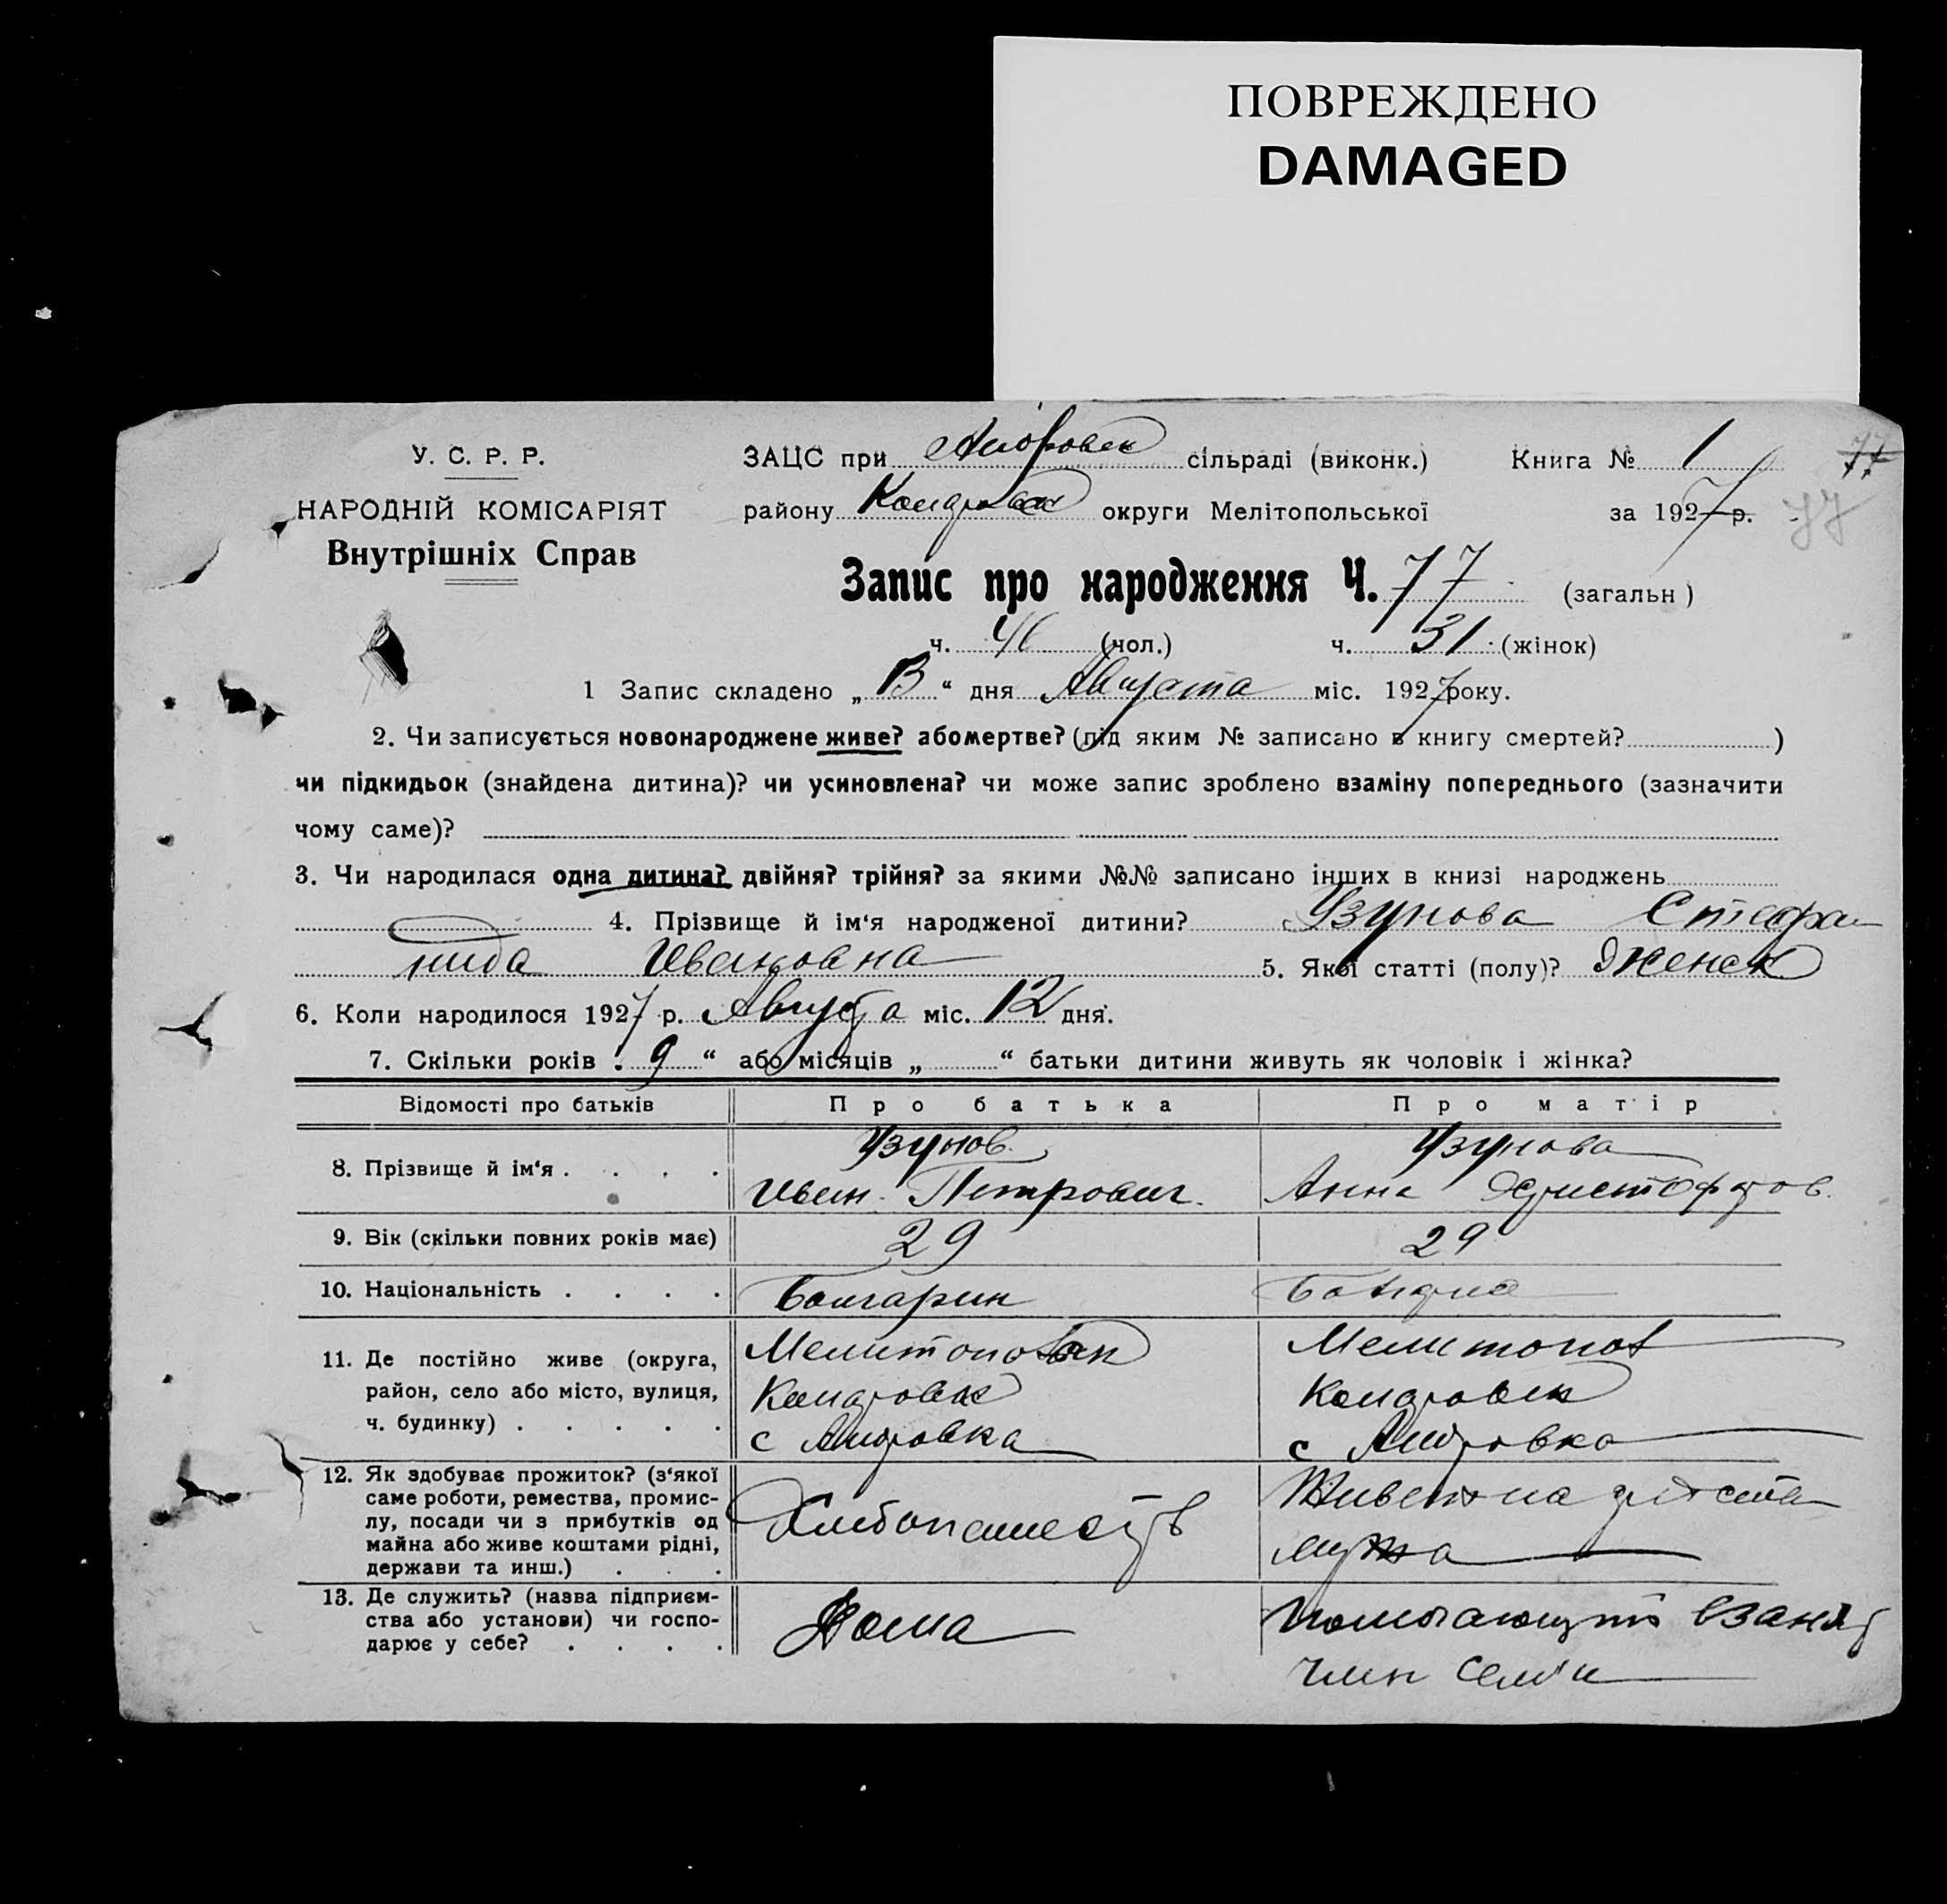 ПОВРЕЖДЕНО
DAMAGED
У. С. Р. Р.
НАРОДНІЙ КОМІСАРІЯТ
Внутрішніх Справ
ЗАЦС при сільраді (виконк.) Книга № 1 77
району округи Мелітопольської за 1927 р. 77
Запис про народження Ч. 77 (загальн)
ч. 46 (чол.) ч. 31 (жінок)
1 Запис складено „ “ дня Августа міс. 1927 року.
2. Чи записується новонароджене живе? або мертве? (під яким № записано в книгу смертей? )
чи підкидьок (знайдена дитина)? чи усиновлена? чи може запис зроблено взаміну попереднього (зазначити
чому саме)?
3. Чи народилася одна дитина? двійня? трійня? за якими №№ записано інших в книзі народжень
4. Прізвище й ім‘я народженої дитини? Узунова Стефа
нида Ивановна 5. Якої статті (полу)? Женск
6. Коли народилося 1927 р. Августа міс. 12 дня.
7. Скільки років „ 9 “ або місяців „ “ батьки дитини живуть як чоловік і жінка?
Відомості про батьків Про батька Про матір
8. Прізвище й ім‘я . . . . Узунов Иван Петрович Узунова Анна
9. Вік (скільки повних років має) 29 29
10. Національність . . . . Болгарин
11. Де постійно живе (округа,
район, село або місто, вулиця,
ч. будинку) . . . . .
Мелитопол
с
Мелитопол
с
12. Як здобуває прожиток? (з‘якої
саме роботи, ремества, промис-
лу, посади чи з прибутків од
майна або живе коштами рідні,
держави та инш.) . . .
Живет на
мужа
13. Де служить? (назва підприєм-
ства або установи) чи госпо-
дарює у себе? . . . .
Дома
член семи